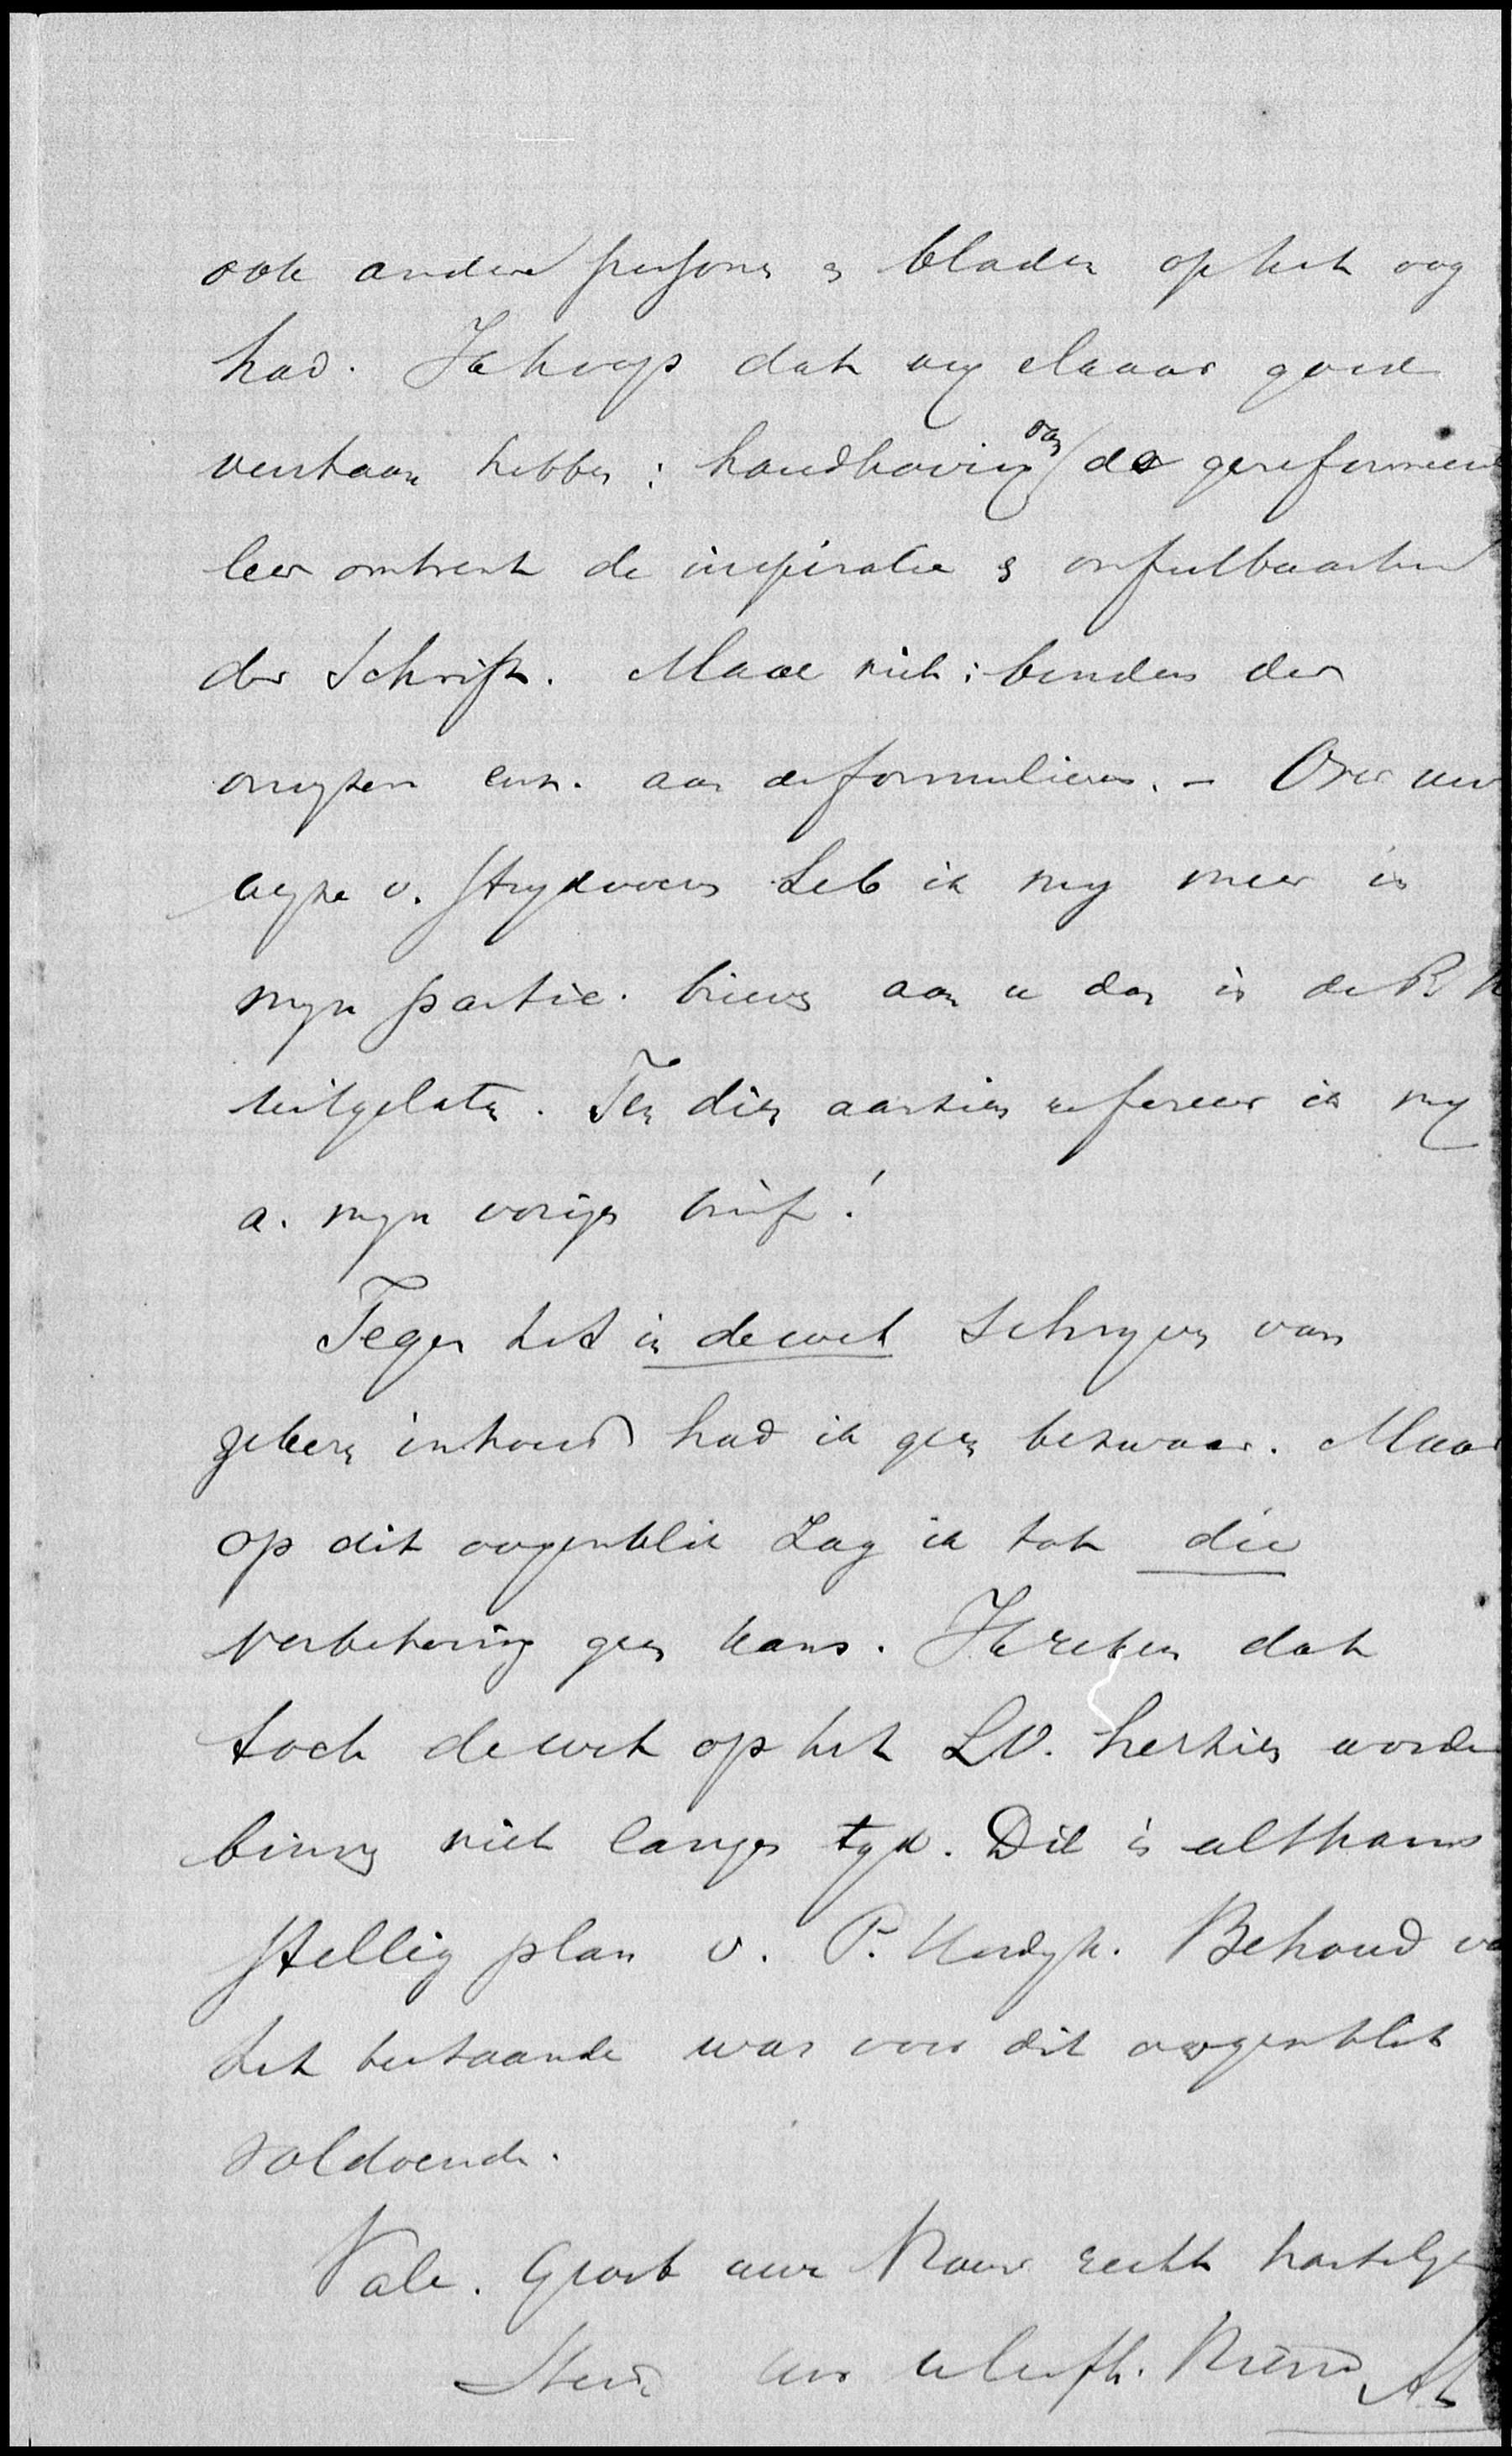 ook andere personen en bladen op het oog
had. Ik hoop dat wij elkaar goed
verstaan hebben: handhaving van de gereformeerde
leer omtrent de inspiratie en onfeilbaarheid
der Schrift. Maar niet: binden der
enz. aan de formulieren. – Over uw
wijze v. strijdvoeren heb ik mij meer in
mijn partic. brieven aan u dan in de
uitgelaten. Ten dien aanzien refereer ik mij
a. mijn vorigen brief!
Tegen het in de wet schrijven van
inhoud had ik geen bezwaar. Maar
op dit oogenblik zag ik tot die
verbetering geen kans. Ik reken dat
toch de wet op het L.O. herzien worde
binnen niet langen tijd. Dit is althans
stellig plan v. P. Hordijk. Behoud van
het bestaande was voor dit oogenblik
voldoende.
Vale. Groet uwe Vrouw recht hartelijk
Steeds uw liefh. Vriend